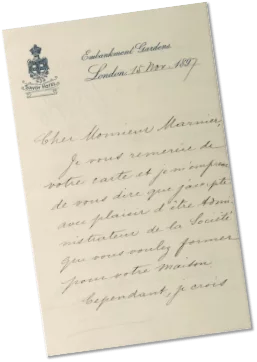 Embankment Gardens
London 15 Nov. 1897.
Cher Monsieur Marnier,
Je vous remercie de
votre carte et je m'empresse
de vous dire que j'accepte
avec plaisir d'être Admi-
nistrateur de la Société
que vous voulez former
pour votre maison.
Cependant, je crois